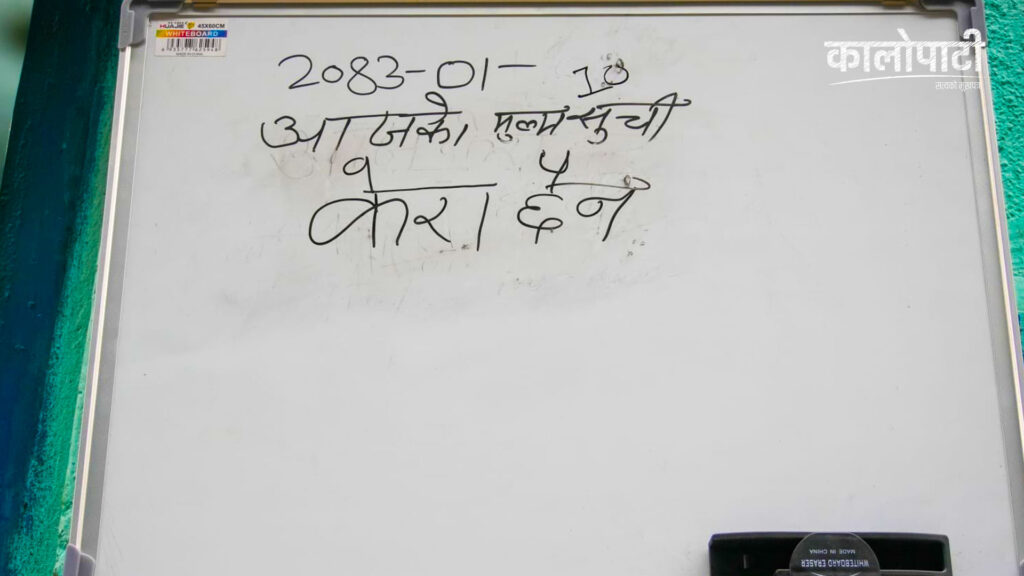 HUAJIE 45X60CM
WHITEBOARD
कालोपाटी
2083-01-10
आजको मुल्य सुची
केरा छैन
WHITEBOARD ERASER
MADE IN CHINA